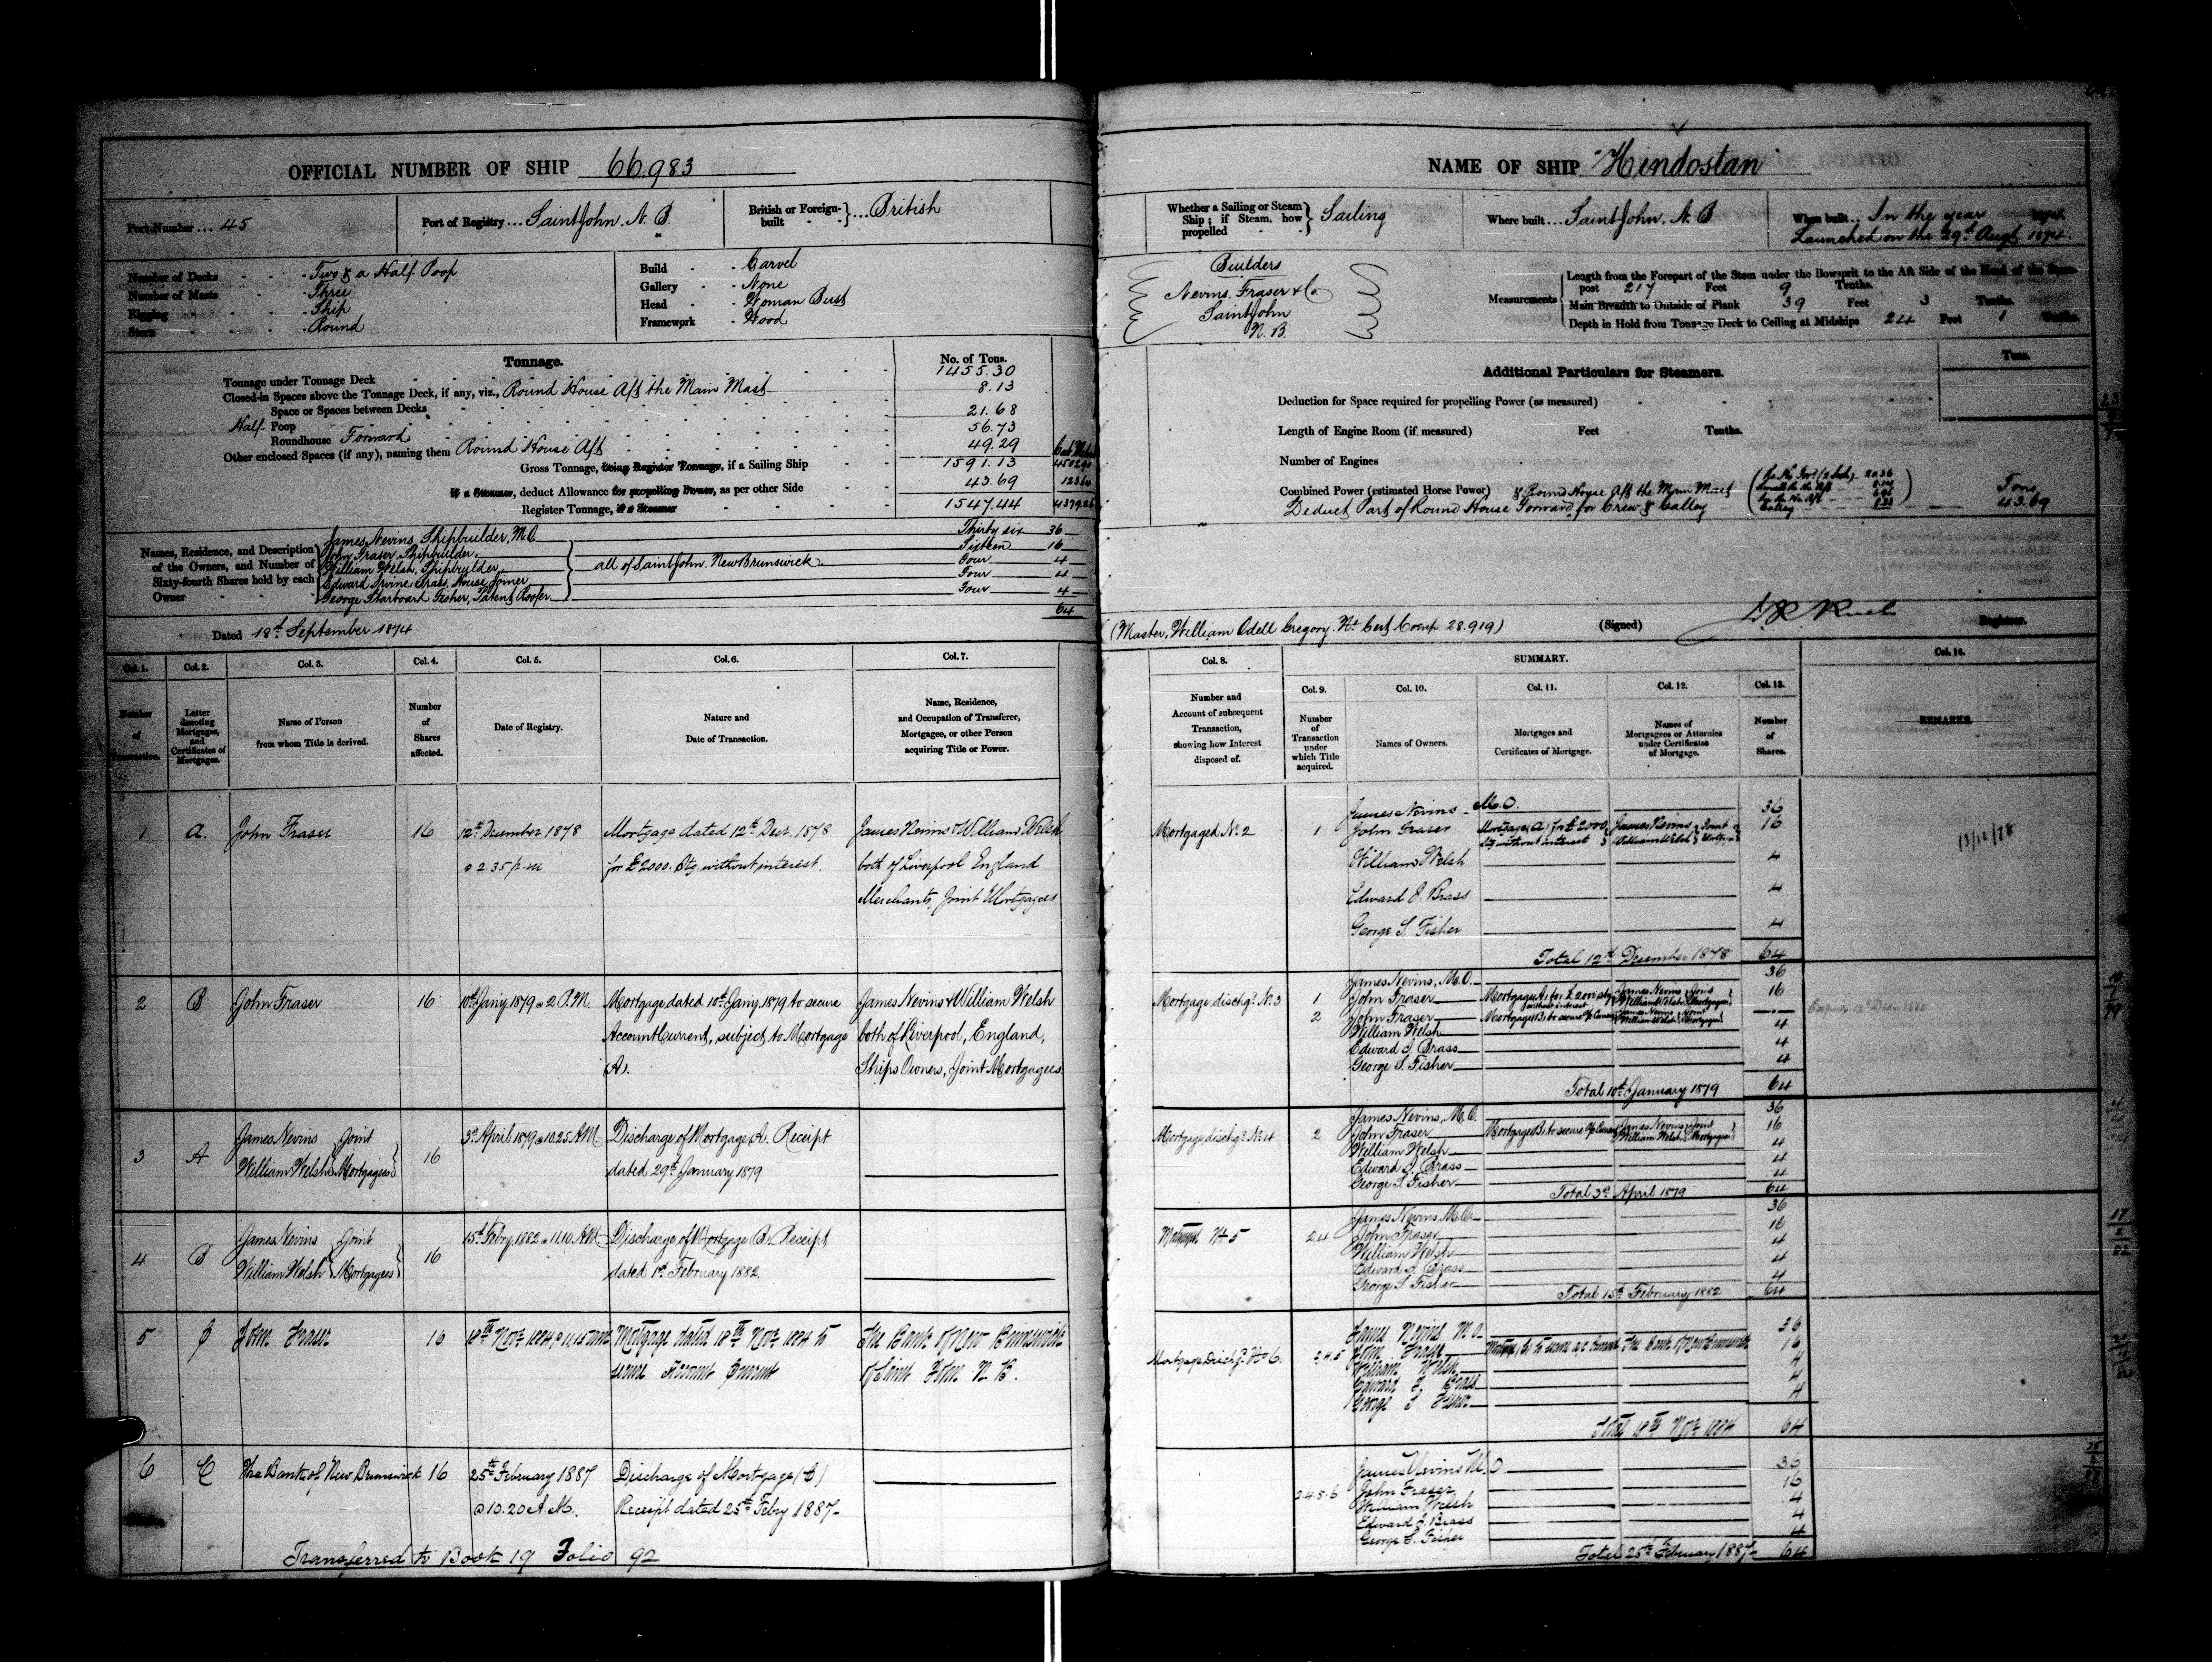 OFFICIAL NUMBER OF SHIP 66.983
Port Number ... 45
Port of Registry ... Saint John. N. B.
British or Foreign-built } ... British
Number of Decks - Two & a Half Poop
Number of Masts - Three
Rigging - Ship
Stern - Round
Build - Carvel
Gallery - None
Head - Woman Bust
Framework - Wood
Tonnage. No. of Tons.
Tonnage under Tonnage Deck 1455.30
Closed-in Spaces above the Tonnage Deck, if any, viz., Round House Aft the Main Mast 8.13
Space or Spaces between Decks 21.68
Half Poop 56.73
Roundhouse Forward 49.29
Other enclosed Spaces (if any), naming them Round House Aft
Gross Tonnage, being Register Tonnage, if a Sailing Ship 1591.13
if a Steamer, deduct Allowance for propelling Power, as per other Side 43.69
Register Tonnage, if a Steamer 1547.44
Names, Residence, and Description of the Owners, and Number of Sixty-fourth Shares held by each Owner
James Nevins, Shipbuilder, M.O. Thirty six 36
John Fraser, Shipbuilder, Sixteen 16
William Welsh, Shipbuilder, all of Saint John. New Brunswick Four 4
Edward Irvine Brass, House Joiner Four 4
George Starboard Fisher, Patent Roofer Four 4
64
Dated 18th September 1874
Col. 1. Col. 2. Col. 3. Col. 4. Col. 5. Col. 6. Col. 7.
Number of Transaction.
Letter denoting Mortgages, and Certificates of Mortgages.
Name of Person from whom Title is derived.
Number of Shares affected.
Date of Registry.
Nature and Date of Transaction.
Name, Residence, and Occupation of Transferee, Mortgagee, or other Person acquiring Title or Power.
1 A. John Fraser 16 12th December 1878 Mortgage dated 12th Decr. 1878 James Nevins & William Welsh
@ 2.35 p.m for £2000. Stg. without interest. both of Liverpool England
Merchants, Joint Mortgagees
2 B John Fraser 16 10th Jany. 1879 @ 2 P.M. Mortgage dated 10th Jany. 1879 to secure James Nevins & William Welsh
Account Current, subject to Mortgage both of Liverpool, England,
(A). Ships Owners, Joint Mortgagees
3 A James Nevins } Joint 16 3d April 1879 @ 10.25 A.M. Discharge of Mortgage A. Receipt
William Welsh } Mortgagees dated 29th January 1879
4 B James Nevins } Joint 16 15th Febry. 1882 @ 11.10 A.M. Discharge of Mortgage B. Receipt
William Welsh } Mortgagees dated 1st February 1882.
5 C John Fraser 16 18th Novr. 1884 @ 11.15 Mortgage dated 18th Novr. 1884 to The Bank of New Brunswick
secure Account Current of Saint John N. B.
6 C The Bank of New Brunswick 16 25th February 1887 Discharge of Mortgage (C)
@ 10.20 A.M. Receipt dated 25th Febry 1887-
Transferred to Book 19 Folio 92
NAME OF SHIP "Hindostan"
Whether a Sailing or Steam Ship; if Steam, how propelled } Sailing
Where built ... Saint John. N. B
When built ... In the year
Launched on the 29th Augt. 1874.
Builders
Nevins, Fraser & Co
Saint John
N. B.
Measurements
Length from the Forepart of the Stem under the Bowsprit to the Aft Side of the Head of the Stern-post 217 Feet 9 Tenths.
Main Breadth to Outside of Plank 39 Feet 3 Tenths.
Depth in Hold from Tonnage Deck to Ceiling at Midships 24 Feet 1 Tenths.
Additional Particulars for Steamers. Tons.
Deduction for Space required for propelling Power (as measured)
Length of Engine Room (if measured) Feet Tenths.
Number of Engines
Combined Power (estimated Horse Power) & Round House Aft the Main Mast Tons
Deduct Part of Round House Forward for Crew & Galley 43.69
(Master, William Odell Gregory. No. Cert. Comp. 28.919) (Signed) Registrar.
Col. 8. SUMMARY. Col. 14.
Col. 9. Col. 10. Col. 11. Col. 12. Col. 13.
Number and Account of subsequent Transaction, showing how Interest disposed of.
Number of Transaction under which Title acquired.
Names of Owners.
Mortgages and Certificates of Mortgage.
Names of Mortgagees or Attornies under Certificates of Mortgage.
Number of Shares.
REMARKS.
James Nevins - M.O. 36
Mortgaged No. 2 1 John Fraser Mortgage (A) for £2000 Stg without interest James Nevins William Welsh Joint 16
13/12/78
William Welsh 4
Edward I. Brass 4
George S. Fisher 4
Total 12th December 1878 64
James Nevins, M.O. 36
Mortgage dischgd. No. 3 1 John Fraser Mortgage (A) for £2000 stg without interest James Nevins William Welsh Joint Mortgagees 16
2 John Fraser Mortgage (B) to secure a/c Current James Nevins William Welsh Joint Mortgagees
William Welsh 4
Edward I. Brass 4
George S. Fisher 4
Total 10th January 1879 64
James Nevins, M.O. 36
Mortgage dischgd. No. 4 2 John Fraser Mortgage (B) to secure a/c Current James Nevins William Welsh Joint Mortgagees 16
William Welsh 4
Edward I. Brass 4
George S. Fisher 4
Total 3d April 1879 64
James Nevins M.O. 36
No. 5 2.4 John Fraser 16
William Welsh 4
Edward I. Brass 4
George S. Fisher 4
Total 15th February 1882 64
James Nevins M.O. 36
Mortgage Dischgd. No. 6. 2.4.5 John Fraser to secure a/c Current The Bank of New Brunswick 16
William Welsh 4
Edward I. Brass 4
George S Fisher 4
Total 18th Novr. 1884 64
James Nevins M.O. 36
2.4.5.6 John Fraser 16
William Welsh 4
Edward I. Brass 4
George S. Fisher 4
Total 25th February 1887- 64